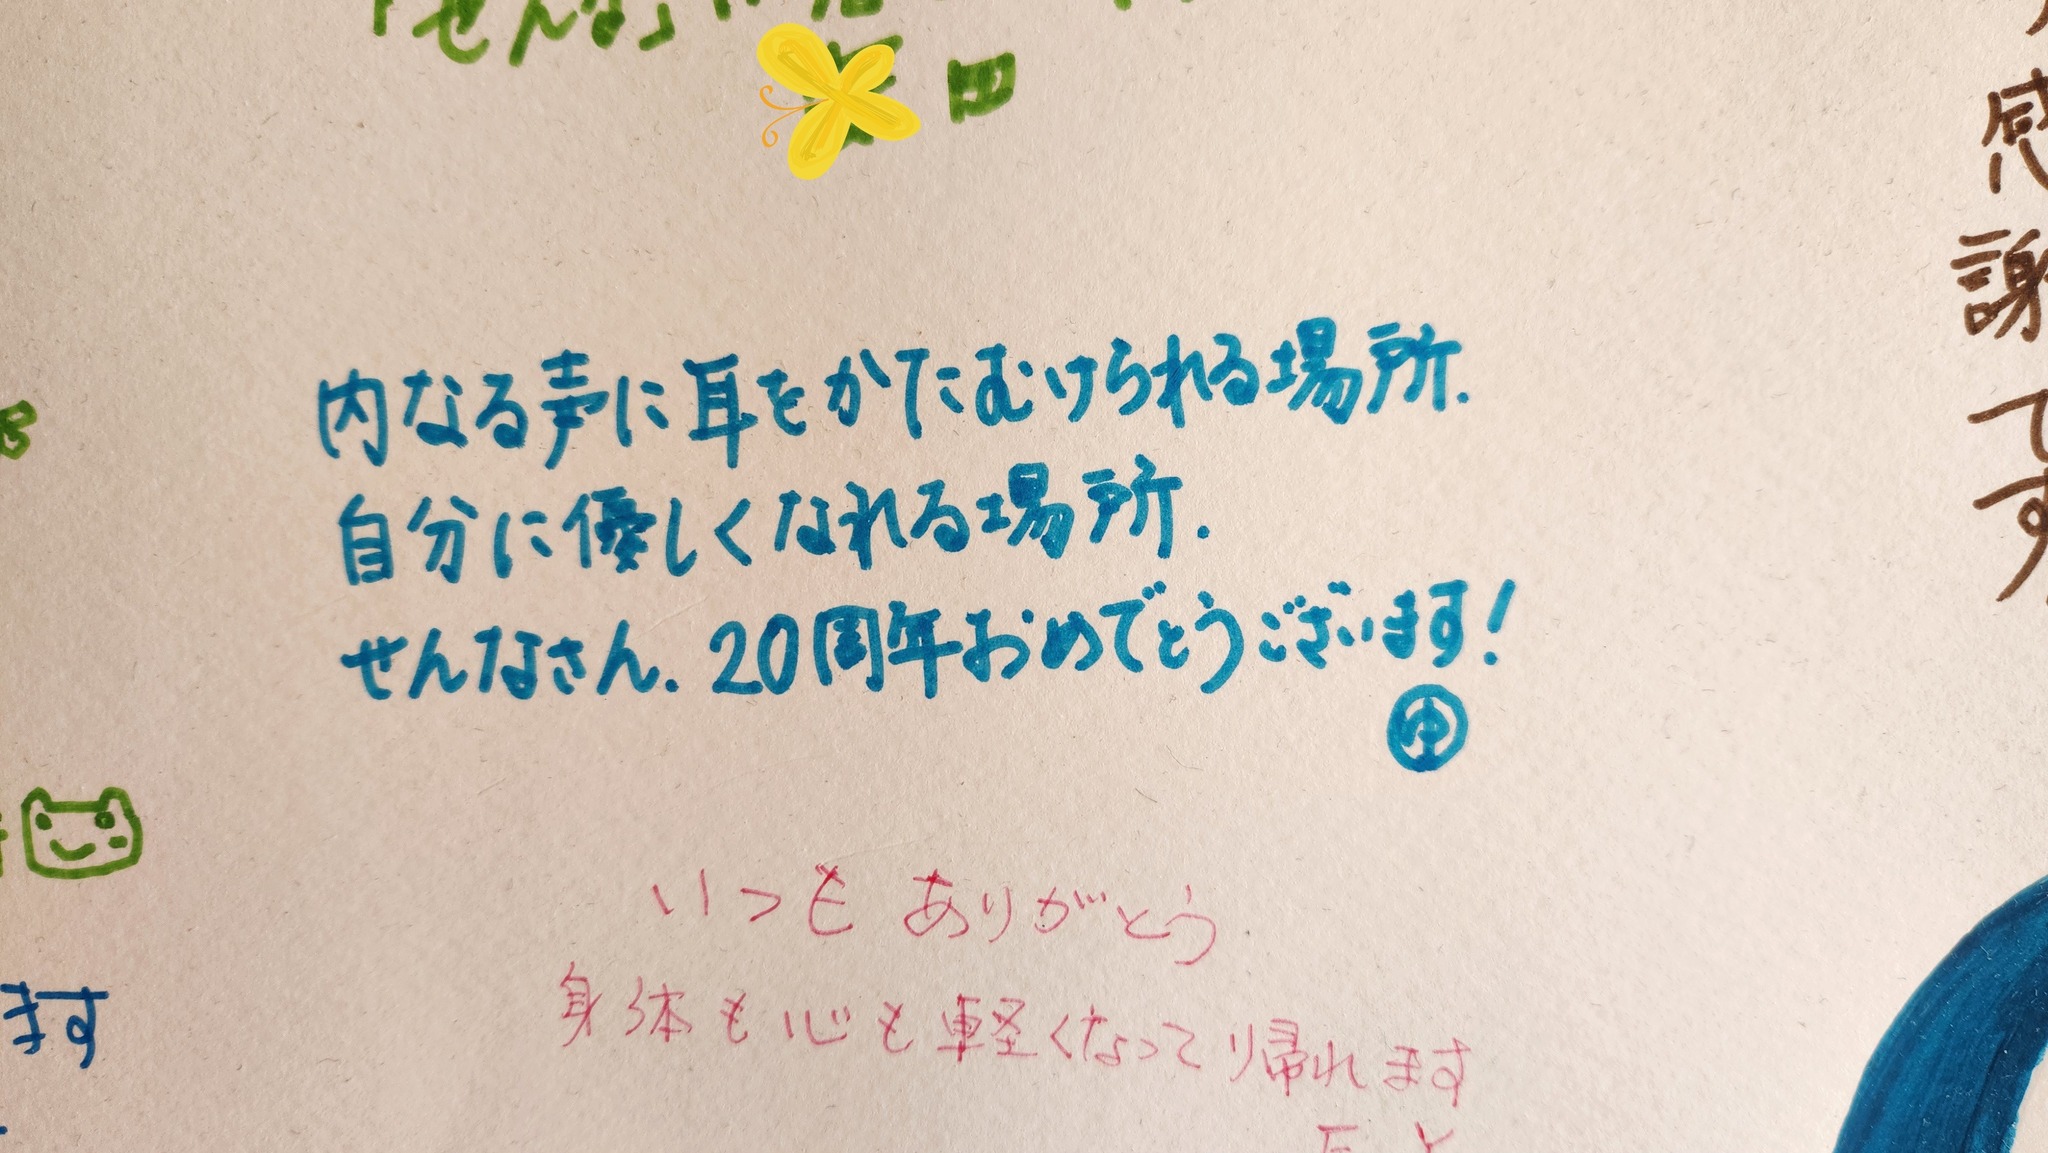 「せんな」
田
感謝です
内なる声に耳をかたむけられる場所.
自分に優しくなれる場所.
せんなさん. 20周年おめでとうございます!
ゆ
いつも ありがとう
身体も心も軽くなって帰れます
ます